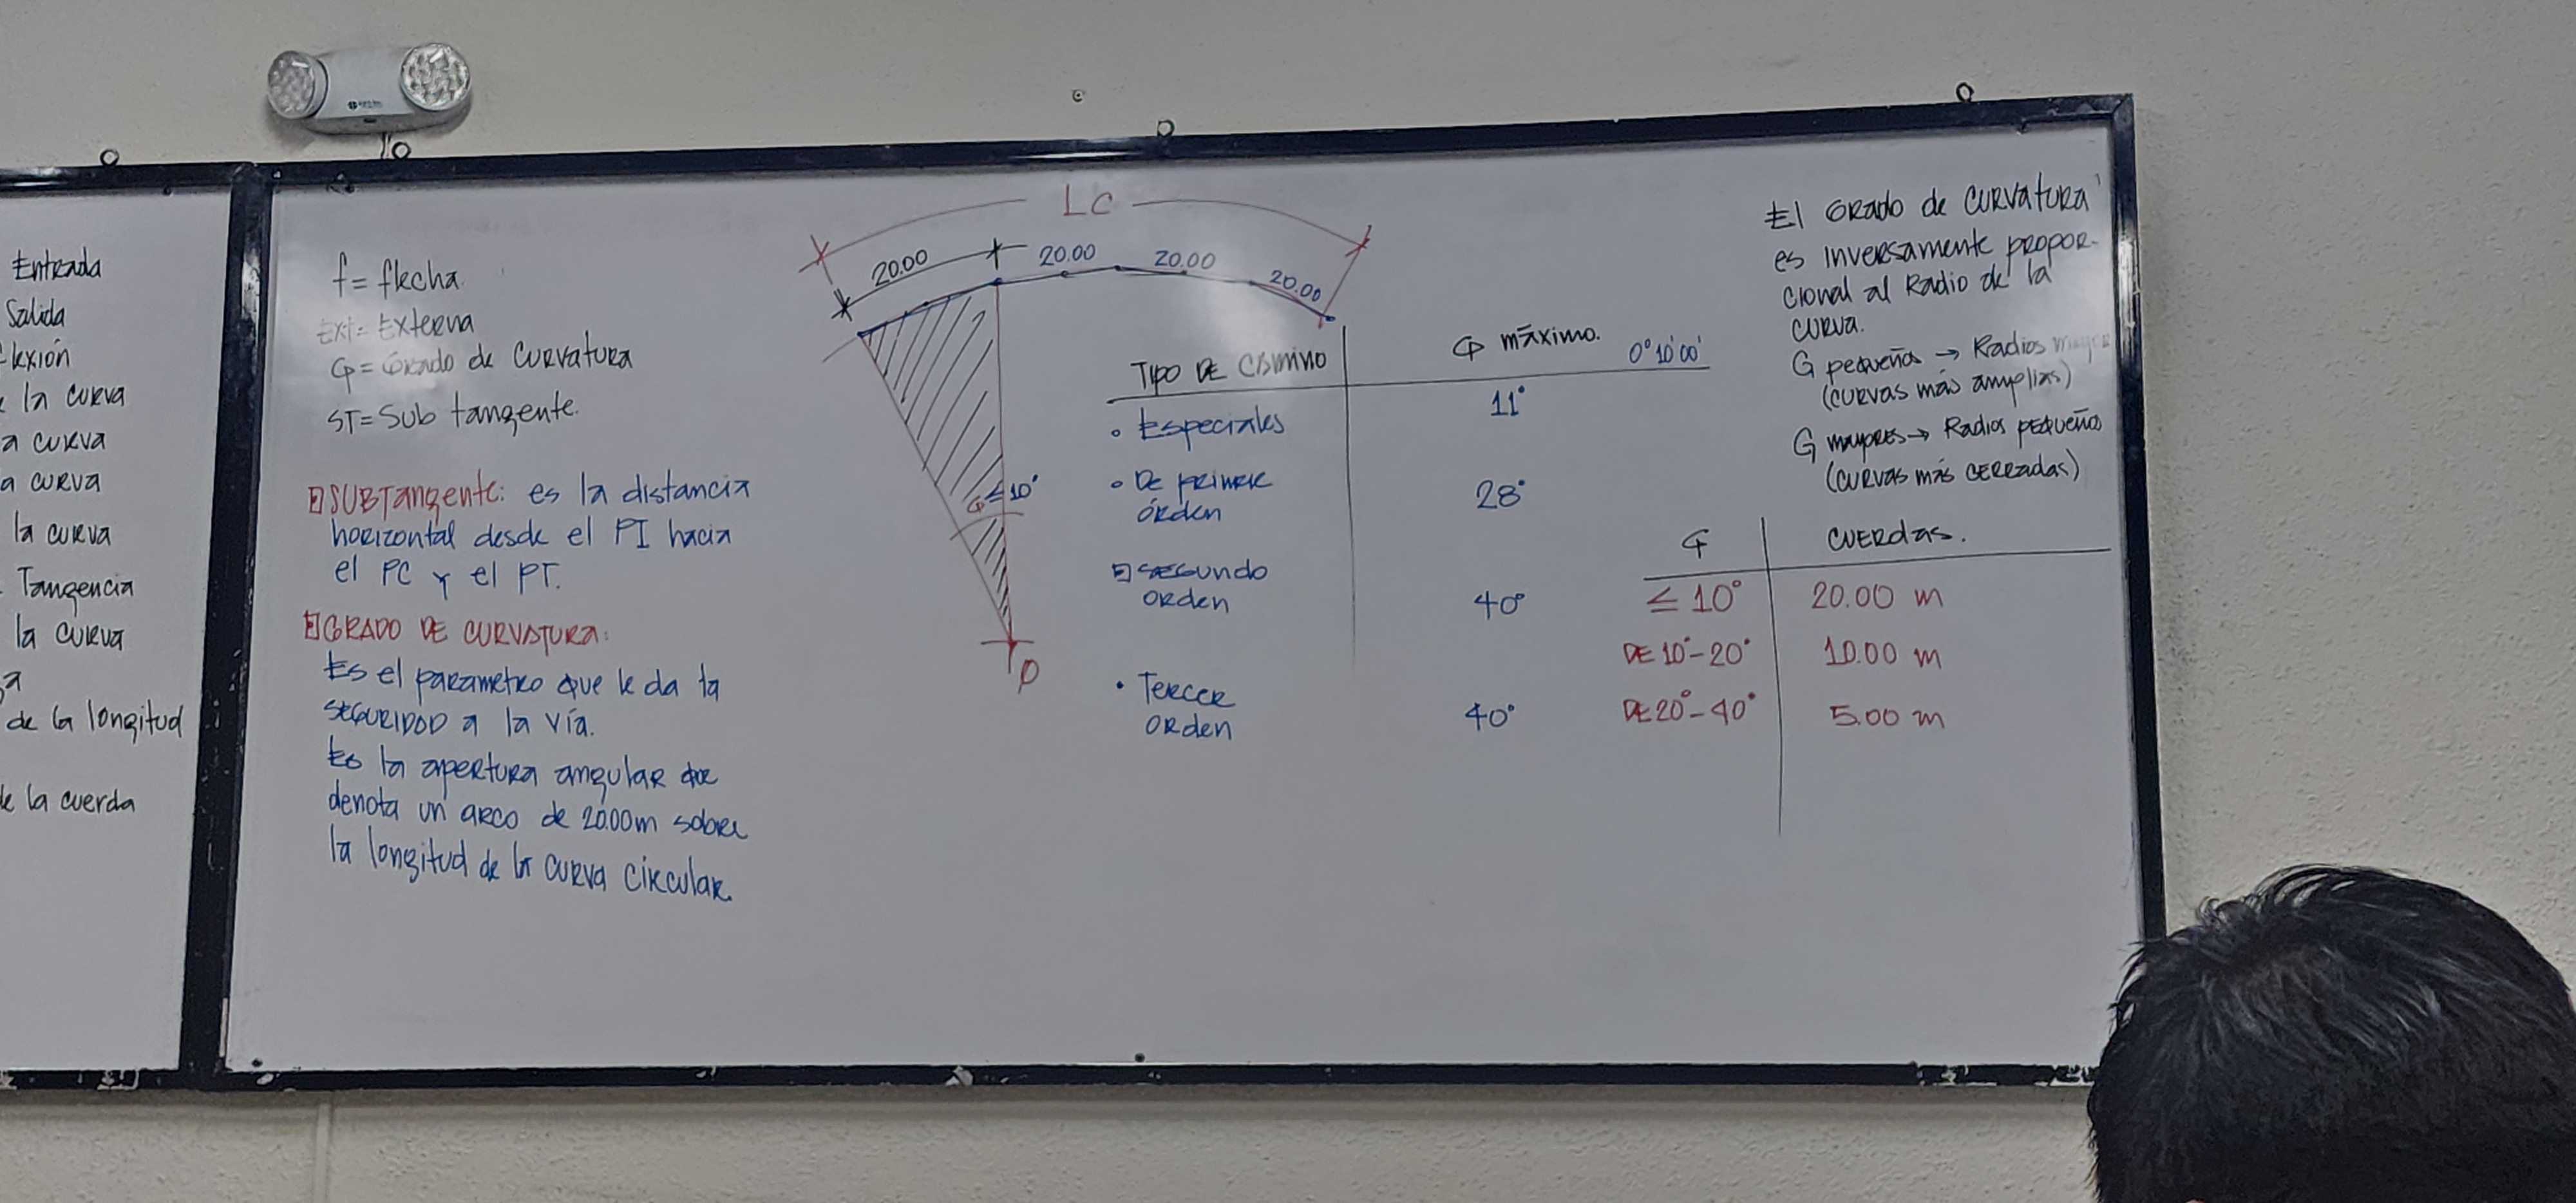 Entrada
Salida
flexión
la curva
a curva
a curva
la curva
Tangencia
la curva
de la longitud
de la cuerda
f = flecha.
Ext = Externa
G = Grado de Curvatura
ST = Sub tangente.
SUBTangente: es la distancia
horizontal desde el PI hacia
el PC y el PT.
GRADO DE CURVATURA:
Es el parametro que le da la
SEGURIDAD a la vía.
Es la apertura angular que
denota un arco de 20.00m sobre
la longitud de la curva circular.
LC
20.00
20.00
20.00
20.00
G ≤ 10°
TIPO DE CAMINO
G máximo.
0°10'00'
• Especiales
11°
• De primer
órden
28°
SEGUNDO
ORden
40°
• Tercer
ORden
40°
El GRado de CURVatura
es Inversamente propor-
cional al Radio de la
CURVA.
G pequeños → Radios mayores
(curvas más amplias)
G mayores → Radios pequeños
(curvas más cerradas)
G
CUERdas.
≤ 10°
20.00 m
DE 10°-20°
10.00 m
DE 20°-40°
5.00 m